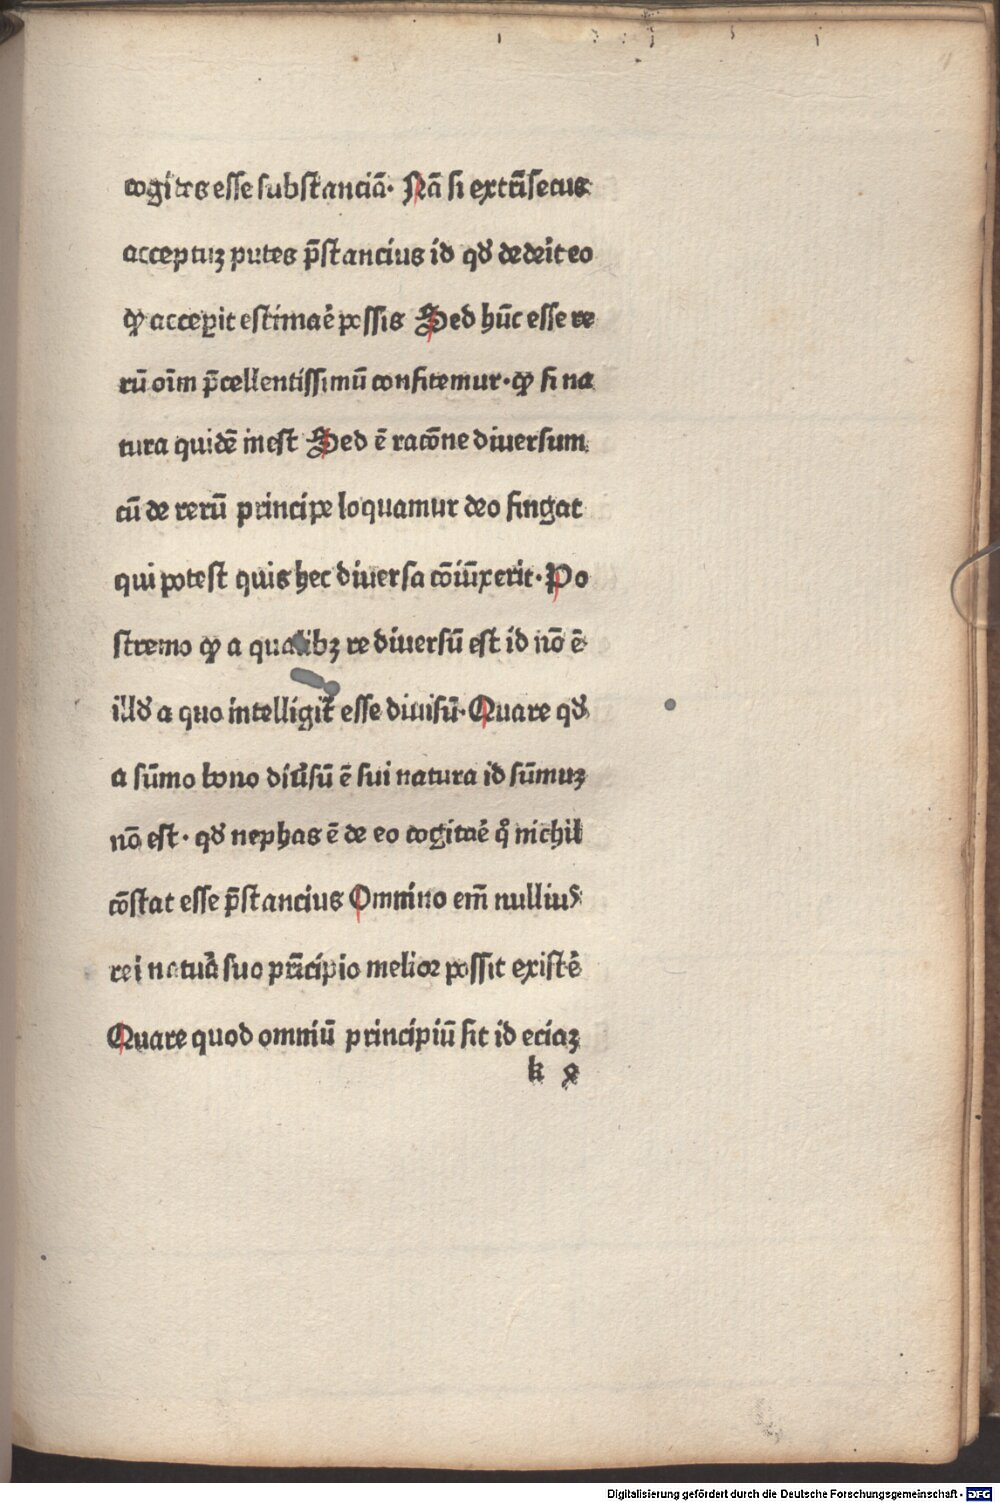 cogites esse substanciā. Nā si extrīsecus
acceptuꝫ putes p̄stancius id qđ dederit eo
ꝙ acceꝑit estimaē possis Sed hūc esse re
rū oīm p̄cellentissimū confitemur. ꝙ si na
tura quidē inest Sed ē racōne diuersum
cū de rerū principe loquamur deo fingat
qui potest quis hec diuersa cōiūxerit. Po
stremo ꝙ a qualibꝫ re diuersū est id nō ē
illđ a quo intelligit̄ esse diuisū. Quare qđ
a sūmo bono diūsū ē sui natura id sūmuꝫ
nō est. qđ nephas ē de eo cogitaē qͦ nichil
cōstat esse p̄stancius Omnino em̄ nullius
rei natuā suo prīcipio melior possit existē
Quare quod omniū principiū sit id eciaꝫ
k x
Digitalisierung gefördert durch die Deutsche Forschungsgemeinschaft - DFG